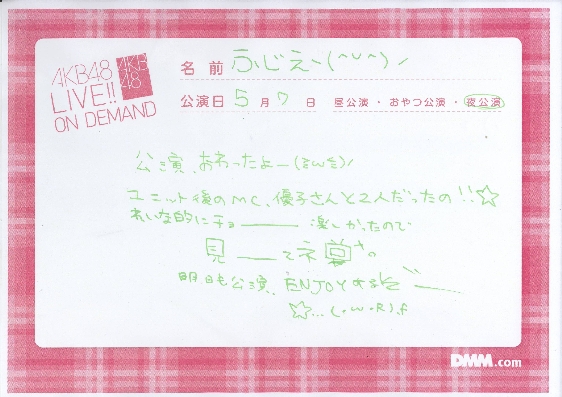 AKB48
LIVE!!
ON DEMAND
AKB
48
名前 ふじえー(^u^)ノ
公演日 5月7日 昼公演・おやつ公演・夜公演
公演、おわったよー(≧ω≦)ノ
ユニット後のMC、優子さんと2人だったの!!☆
れいな的にチョーー楽しかったので
見ーーてネ
明日も公演、ENJOYするぞー
☆…(・ω・R).f
DMM.com